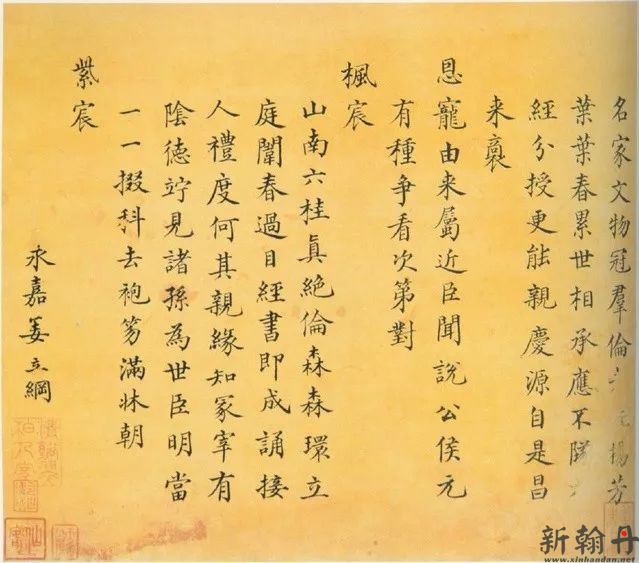 名家文物冠羣倫 㐲揚芳
葉葉春累世相承應不隊
經分授更能親慶源自是昌
来裔
恩寵由来屬近臣聞説公侯元
有種争看次第對
楓宸
山南六桂真絶倫森森環立
庭闈春過目經書即成誦接
人禮度何其親緣知冢宰有
陰德竚見諸孫為世臣明當
一一掇科去袍笏滿牀朝
紫宸
永嘉姜立綱
新翰丹
www.xinhandan.net